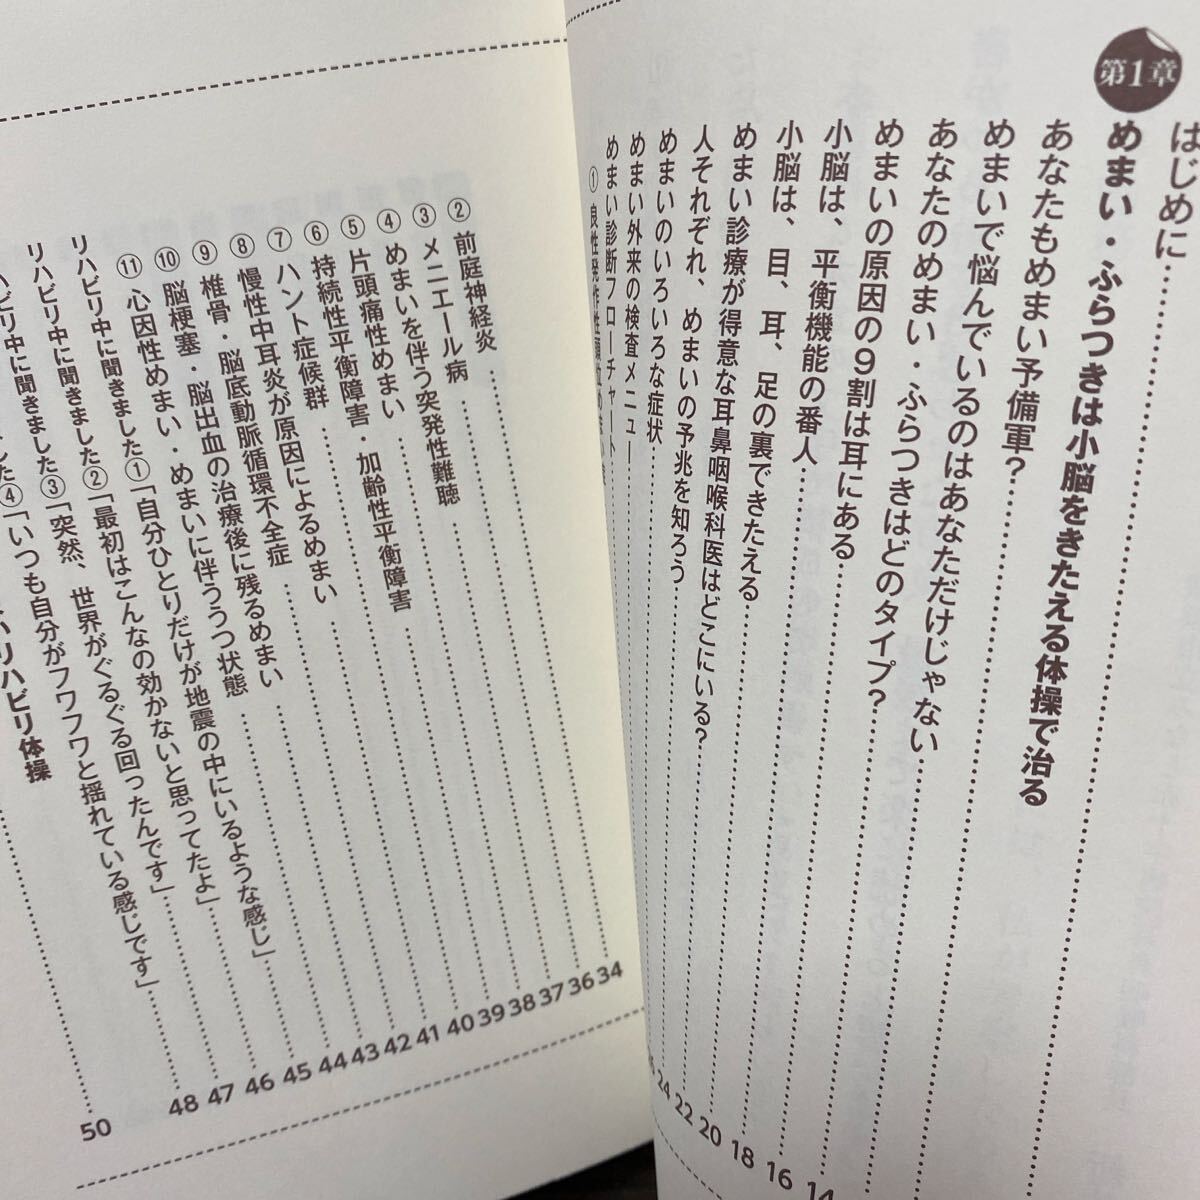 はじめに
第1章
めまい・ふらつきは小脳をきたえる体操で治る
あなたもめまい予備軍?
めまいで悩んでいるのはあなただけじゃない
あなたのめまい・ふらつきはどのタイプ?
めまいの原因の9割は耳にある
小脳は、平衡機能の番人
小脳は、目、耳、足の裏できたえる
めまい診療が得意な耳鼻咽喉科医はどこにいる?
人それぞれ、めまいの予兆を知ろう
めまいのいろいろな症状
めまい外来の検査メニュー
めまい診断フローチャート
① 良性発作性頭位めまい
14
16
18
20
22
24
② 前庭神経炎 34
③ メニエール病 36
④ めまいを伴う突発性難聴 37
⑤ 片頭痛性めまい 38
⑥ 持続性平衡障害・加齢性平衡障害 39
⑦ ハント症候群 40
⑧ 慢性中耳炎が原因によるめまい 41
⑨ 椎骨・脳底動脈循環不全症 42
⑩ 脳梗塞・脳出血の治療後に残るめまい 43
⑪ 心因性めまい・めまいに伴ううつ状態 44
リハビリ中に聞きました①「自分ひとりだけが地震の中にいるような感じ」 45
リハビリ中に聞きました②「最初はこんなの効かないと思ってたよ」 46
リハビリ中に聞きました③「突然、世界がぐるぐる回ったんです」 47
リハビリ中に聞きました④「いつも自分がフワフワと揺れている感じです」 48
リハビリ体操
50